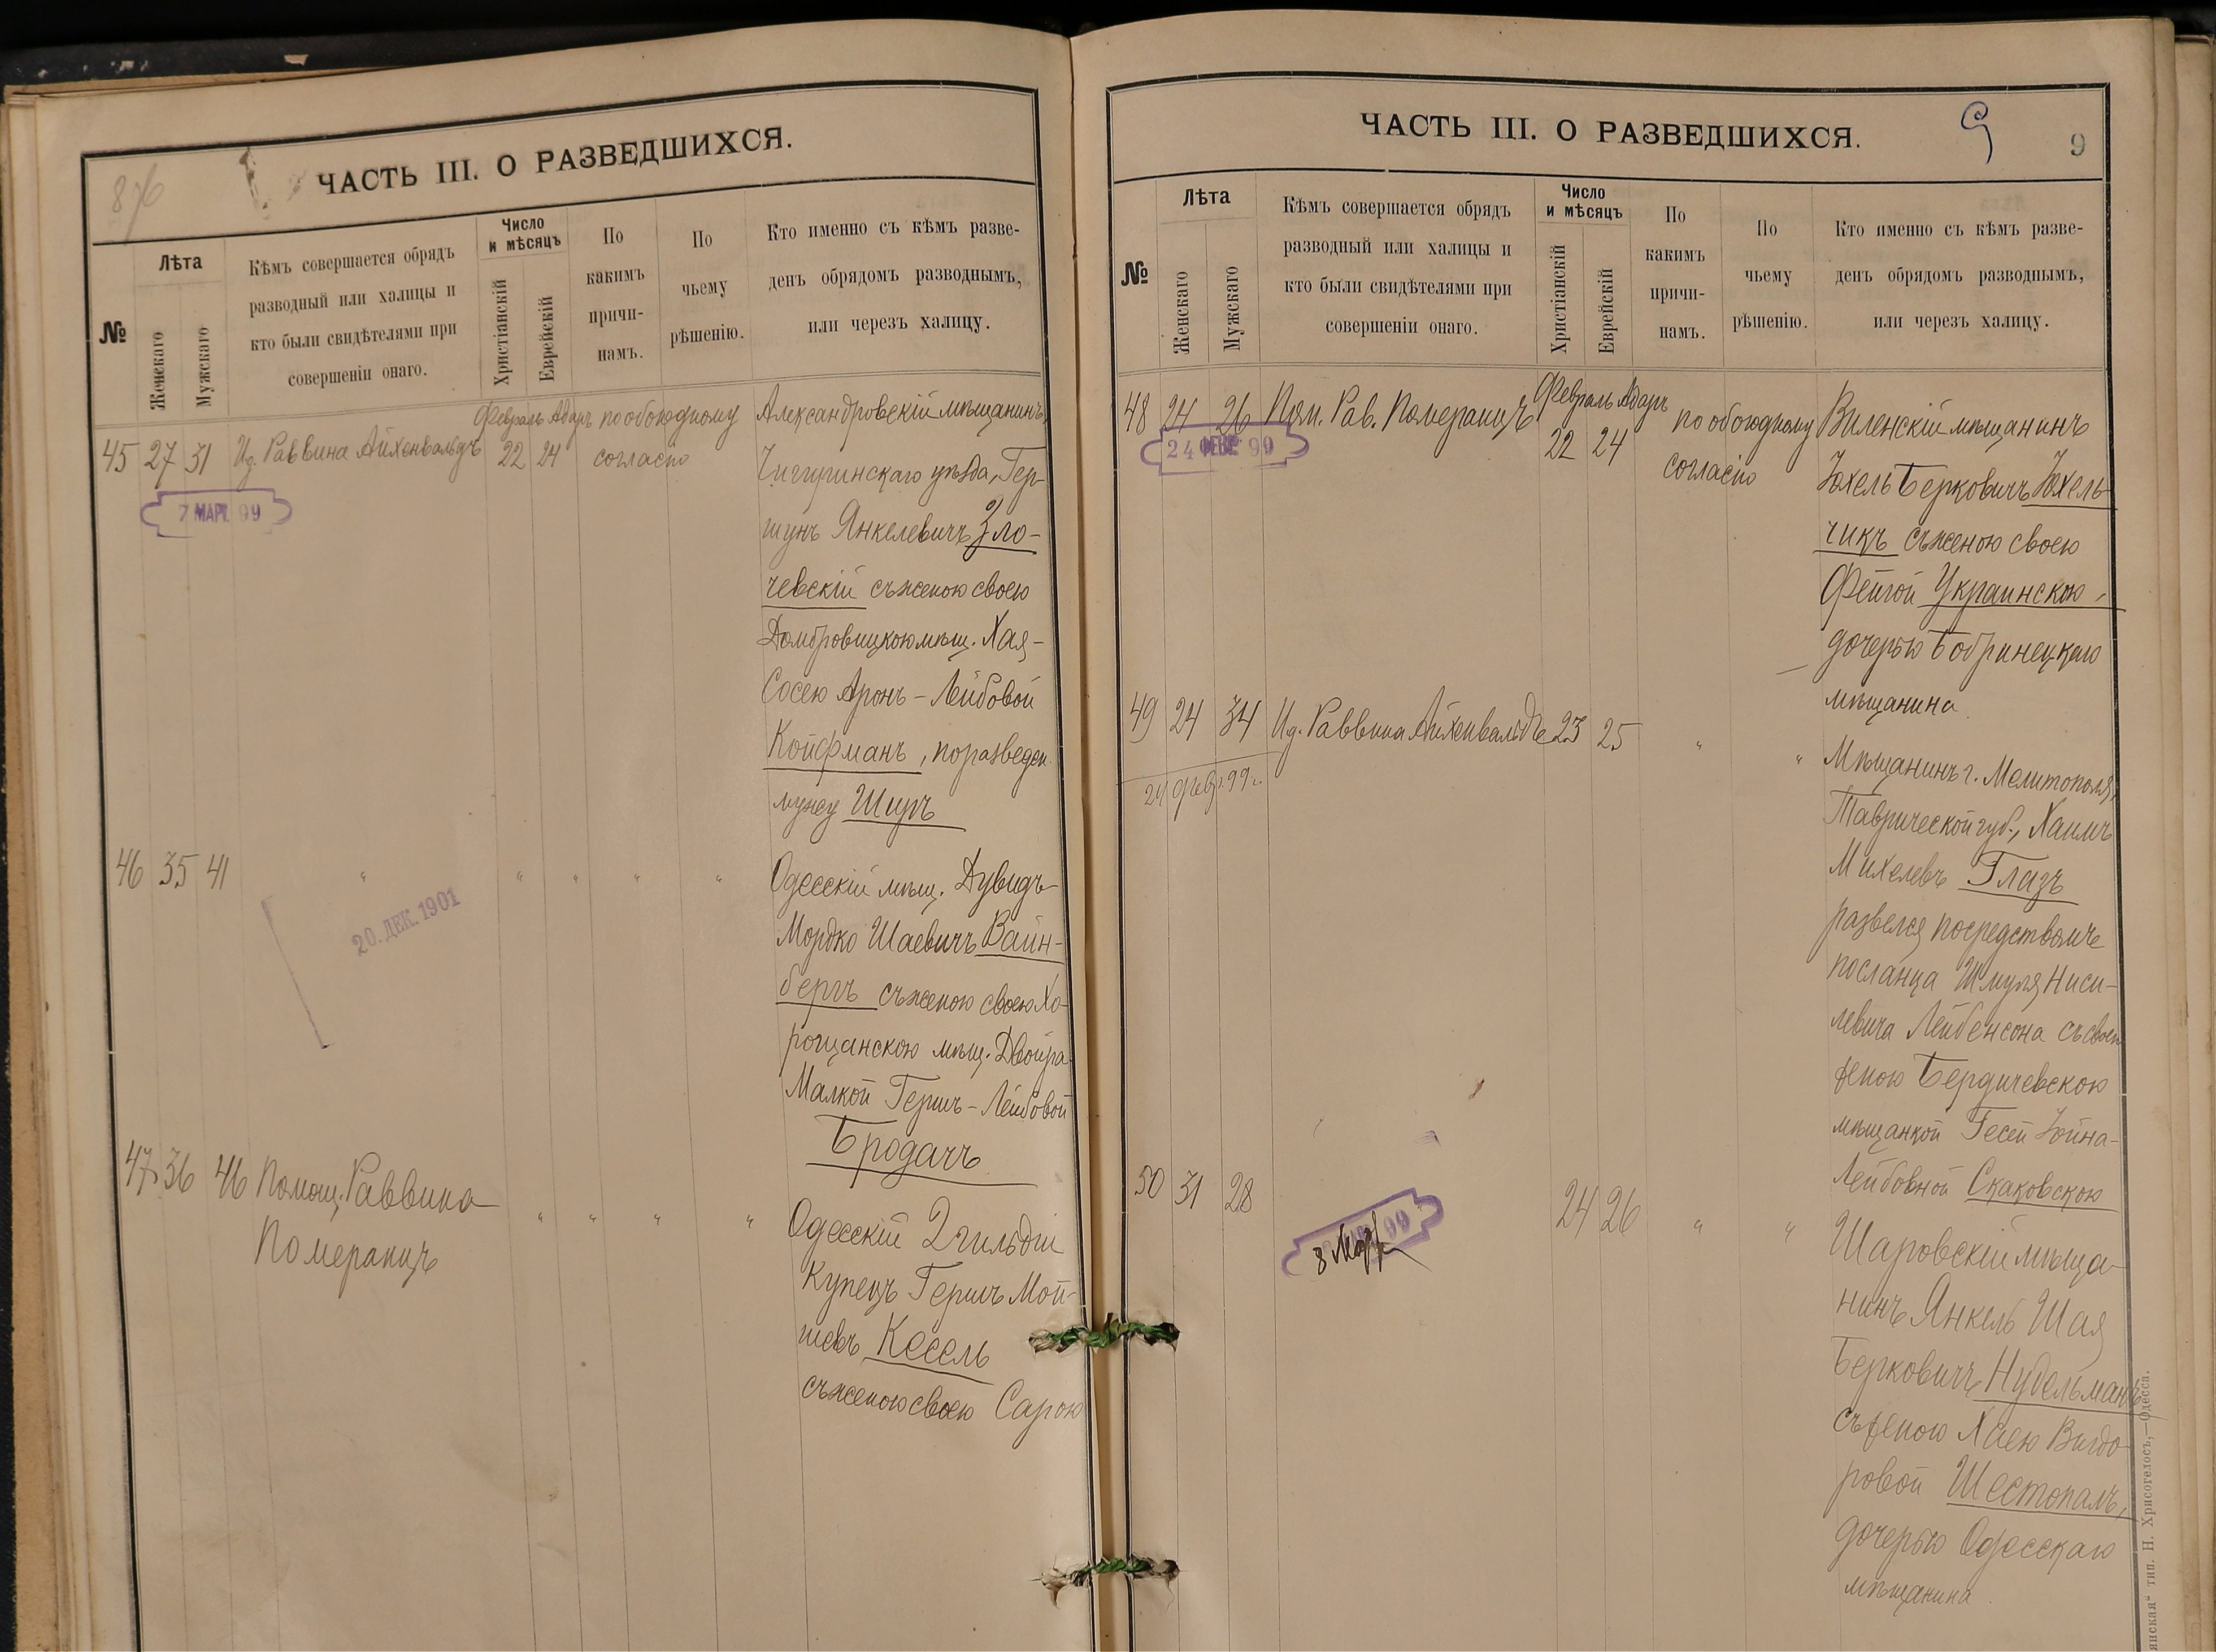 876
ЧАСТЬ III. О РАЗВЕДШИХСЯ.
№
Лѣта
Женскаго
Мужскаго
Кѣмъ совершается обрядъ
разводный или халицы и
кто были свидѣтелями при
совершеніи онаго.
Число
и мѣсяцъ
Христіанскій
Еврейскій
По
какимъ
причи-
намъ.
По
чьему
рѣшенію.
Кто именно съ кѣмъ разве-
денъ обрядомъ разводнымъ,
или черезъ халицу.
45 27 31 Ид. Раввина Айхенвальдъ
Февраль Адаръ
22 24
по обоюдному
согласію
7 МАР. 99
Александровскій мѣщанинъ,
Чигиринскаго уѣзда, Гер-
шунъ Янкелевичъ Зло-
чевскій съ женою своею
Домбровицкою мѣщ. Хая-
Сосею Аронъ-Лейбовой
Койфманъ, по разведен.
мужу Ширъ
46 35 41 " " " " "
20. ДЕК. 1901
Одесскій мѣщ. Дувидъ-
Мордко Шаевичъ Вайн-
бергъ съ женою своею Хо-
рощанскою мѣщ. Двойра
Малкой Гершъ-Лейбовой
Бродачъ
47 36 46 Помощ. Раввина
Померанцъ
" " " "
Одесскій 2 гильдіи
Купецъ Гершъ Мой-
шевъ Кесель
съ женою своею Сарою
ЧАСТЬ III. О РАЗВЕДШИХСЯ.
9
9
№
Лѣта
Женскаго
Мужскаго
Кѣмъ совершается обрядъ
разводный или халицы и
кто были свидѣтелями при
совершеніи онаго.
Число
и мѣсяцъ
Христіанскій
Еврейскій
По
какимъ
причи-
намъ.
По
чьему
рѣшенію.
Кто именно съ кѣмъ разве-
денъ обрядомъ разводнымъ,
или черезъ халицу.
48 24 26 Пом. Рав. Померанцъ
Февраль Адаръ
22 24
по обоюдному
согласію
24 ФЕВР. 99
Виленскій мѣщанинъ
Юхель Берковичъ Юхель-
чикъ съ женою своею
Фейгой Украинскою,
дочерью Бобринецкаго
мѣщанина
49 24 34 Ид. Раввина Айхенвальдъ 23 25 " "
24 февр. 99 г.
Мѣщанинъ г. Мелитополя,
Таврической губ., Хаимъ
Михелевъ Глазъ
развелся посредствомъ
посланца Шмуля Ниси-
левича Лейбенсона съ своею
женою Бердичевскою
мѣщанкой Гесей Юйна-
Лейбовной Скаковскою
50 31 28 24 26 " "
8 Мар 99
Шаровскій мѣща-
нинъ Янкель Шая
Берковичъ Нудельманъ
съ женою Хаею Вигдо-
ровой Шестопалъ,
дочерью Одесскаго
мѣщанина.
тип. Н. Хрисогелосъ,—Одесса.